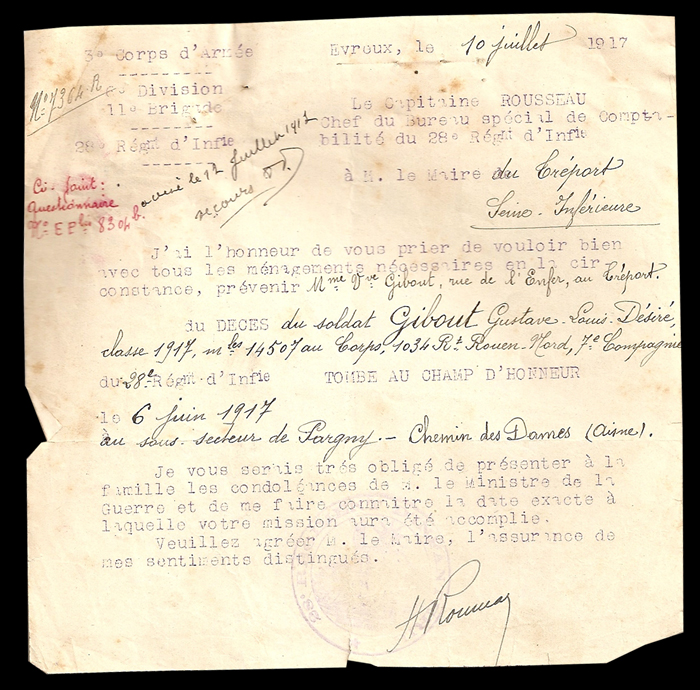 3º Corps d'Armée
Evreux, le 10 juillet 1917
Nº 7364-R
6º Division
11º Brigade
28º Régmt d'Infie
Le Capitaine ROUSSEAU
Chef du Bureau spécial de Compta-
bilité du 28º Régmt d'Infie
à M. le Maire du Tréport
Seine-Inférieure
Ci-joint:
Questionnaire
avisé le 12 Juillet 1917
secours
J'ai l'honneur de vous prier de vouloir bien
avec tous les ménagements nécessaires en la cir
constance, prévenir Mme Vve Gibout, rue de l'Enfer, au Tréport.
du DECES du soldat Gibout Gustave-Louis-Désiré,
classe 1917, mles 14507 au Corps, 1034 Rt Rouen-Nord, 7e Compagnie
du 28e Régmt d'Infie TOMBE AU CHAMP D'HONNEUR
le 6 juin 1917
au sous-secteur de Pargny.- Chemin des Dames (Aisne).
Je vous serais trés obligé de présenter à la
famille les condoléances de M. le Ministre de la
Guerre et de me faire connaitre la date exacte à
laquelle votre mission aura été accomplie.
Veuillez agréer M. le Maire, l'assurance de
mes sentiments distingués.